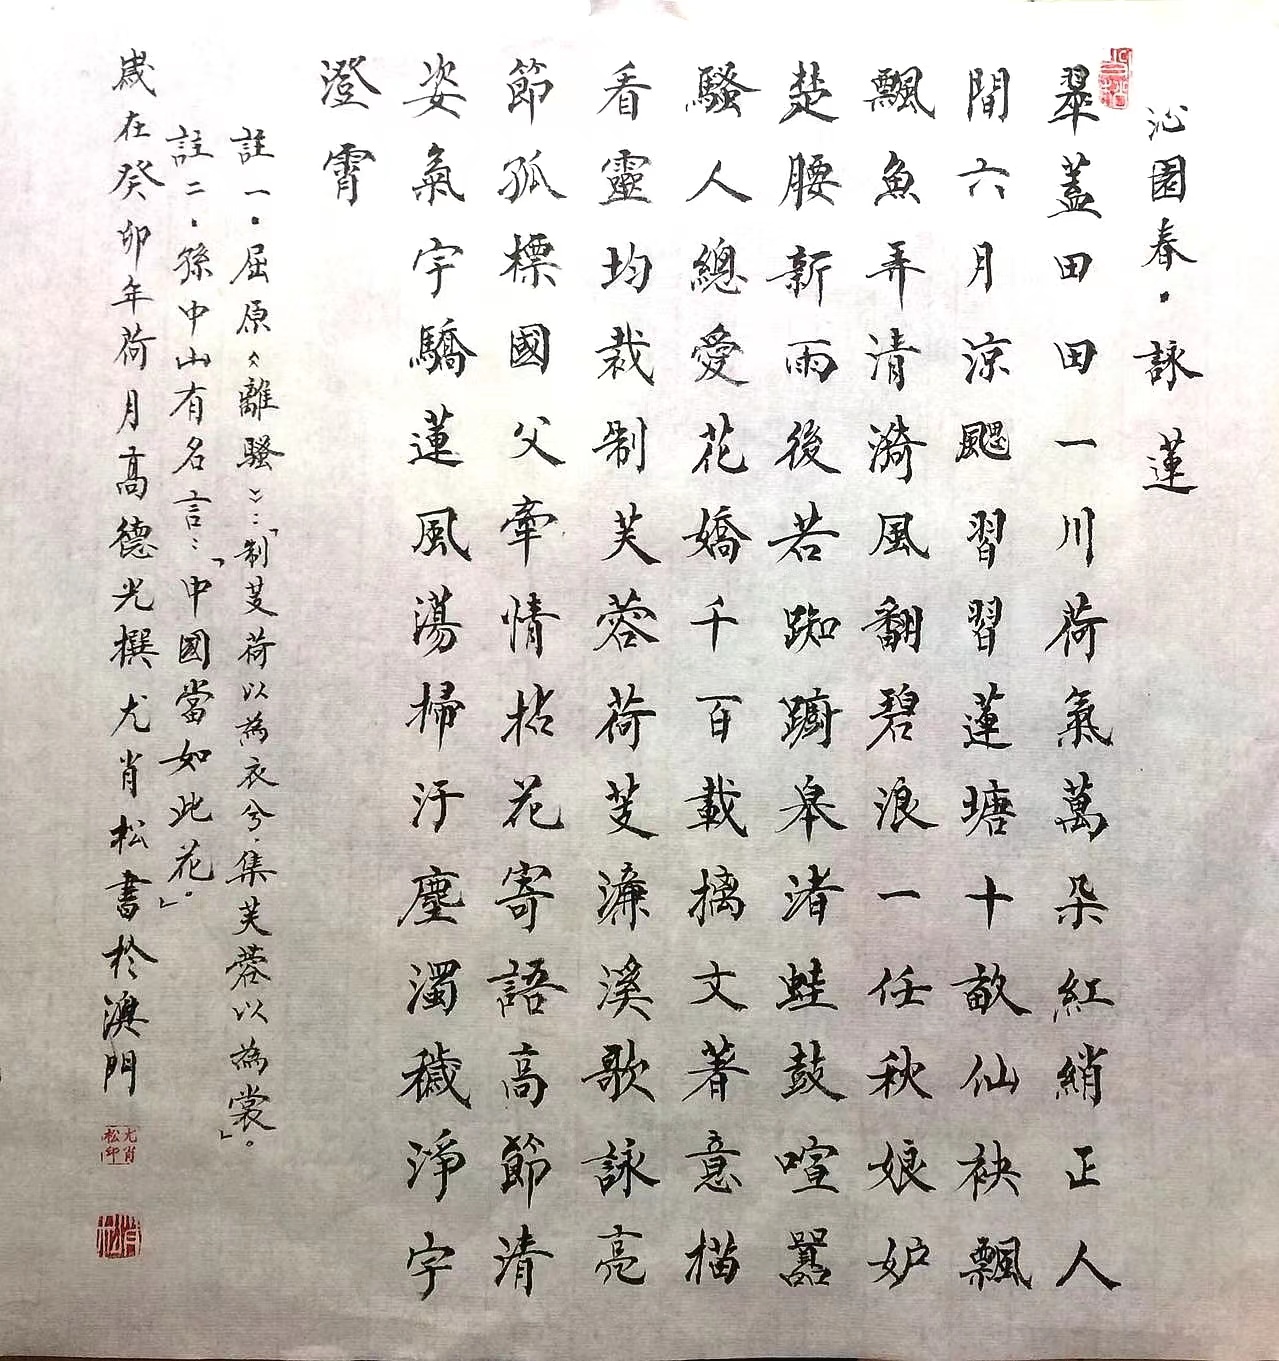 沁園春·詠蓮
翠蓋田田一川荷氣萬朵紅綃正人
間六月涼颸習習蓮塘十畝仙袂飄
飄魚弄清漪風翻碧浪一任秋娘妒
楚腰新雨後若踟躕皋渚蛙鼓喧囂
騷人總愛花嬌千百載摛文著意描
看靈均裁制芙蓉荷芰濂溪歌詠亮
節孤標國父牽情拈花寄語高節清
姿氣宇驕蓮風蕩掃汙塵濁穢淨宇
澄霄
註一·屈原《離騷》:「制芰荷以為衣兮·集芙蓉以為裳」。
註二·孫中山有名言:「中國當如此花。」
歲在癸卯年荷月高德光撰尤肖松書於澳門
尤肖松印
肖松